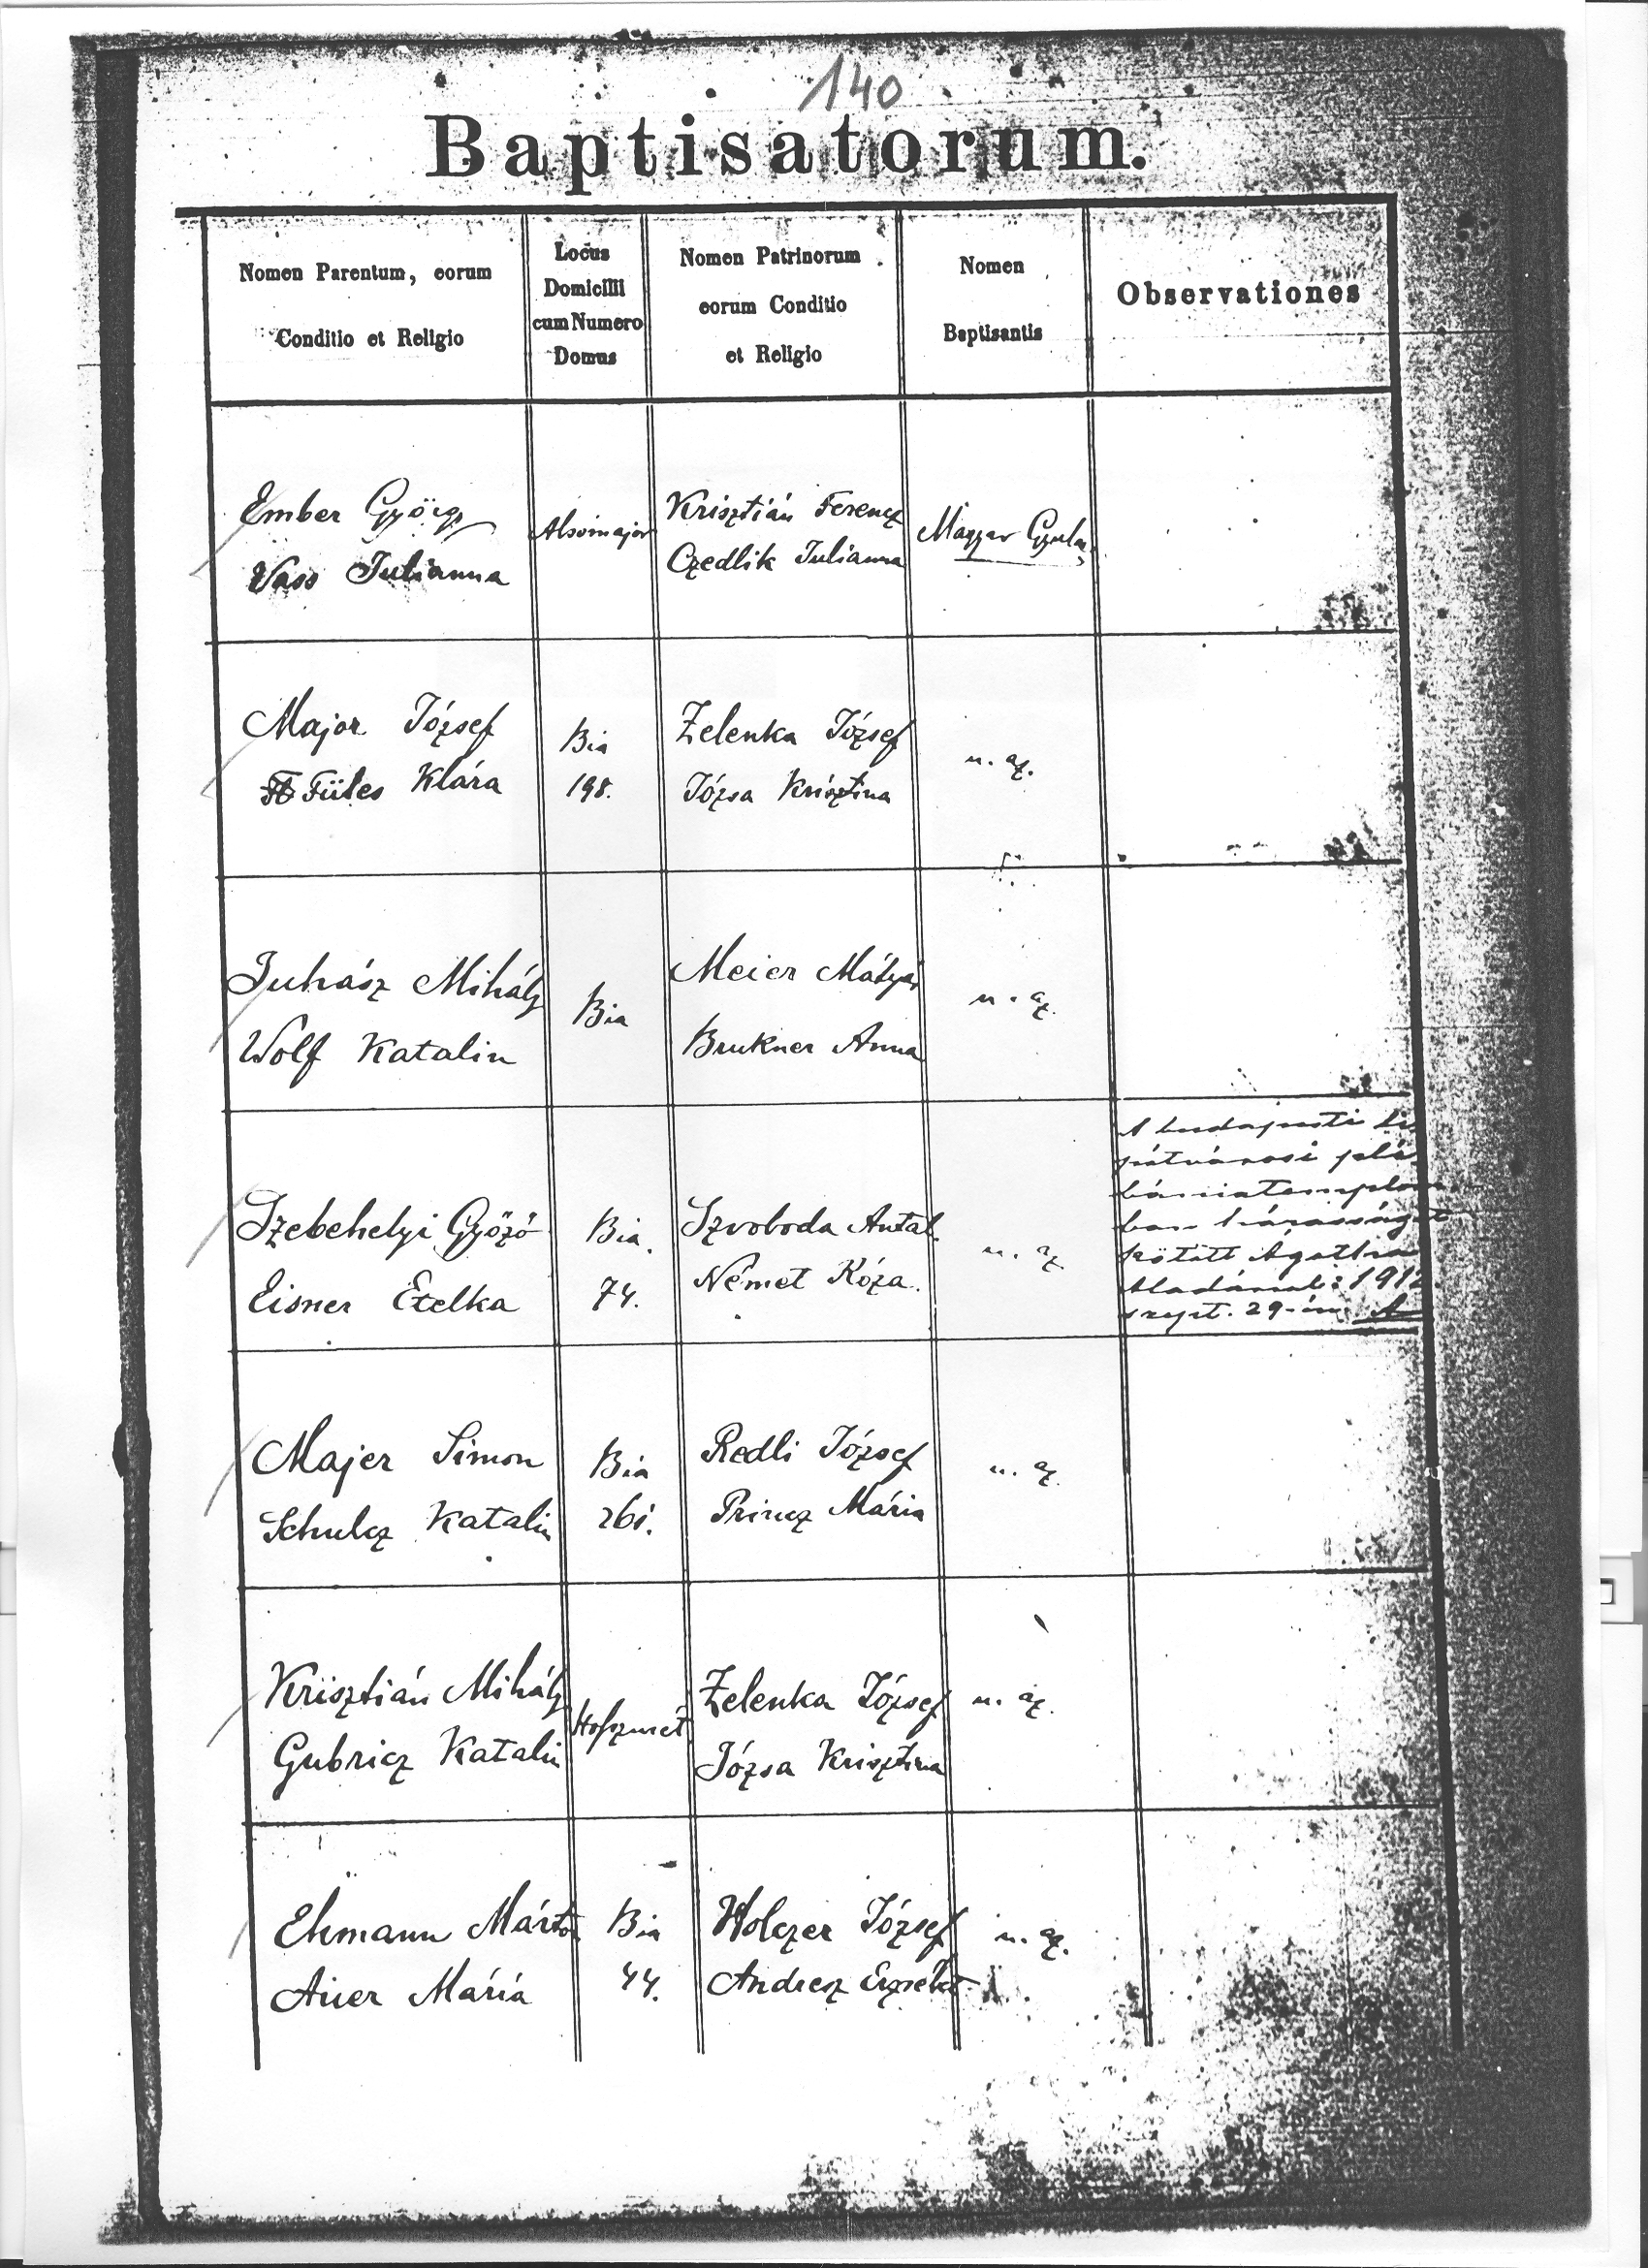 140
Baptisatorum.
Nomen Parentum, eorum
Conditio et Religio
Locus
Domicilii
cum Numero
Domus
Nomen Patrinorum
eorum Conditio
et Religio
Nomen
Baptisantis
Observationes
Ember György
Vass Julianna
Alsómajor
Krisztián Ferencz
Czedlik Julianna
Magyar Gyula
Major József
Füles Klára
Bia
198.
Zelenka József
Józsa Krisztina
u. az.
Juhász Mihály
Wolf Katalin
Bia
Meier Mátyás
Brukner Anna
u. az.
Szebehelyi Győző
Eisner Etelka
Bia.
74.
Szvoboda Antal.
Német Róza.
u. az.
A budapesti
ban házasságot
kötött Ágotha
Aladárral 1912.
szept. 29-én
Majer Simon
Schulcz Katalin
Bia
261.
Redli József
Princz Mária
u. az.
Krisztián Mihály
Gubricz Katalin
Zelenka József
Józsa Krisztina
u. az.
Ehmann Márton
Auer Mária
Bia
44.
Holczer József
Andresz Erzsébet
u. az.